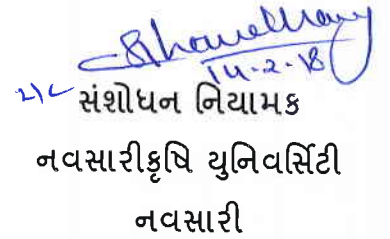 14-2-18
સંશોધન નિયામક
નવસારીકૃષિ યુનિવર્સિટી
નવસારી